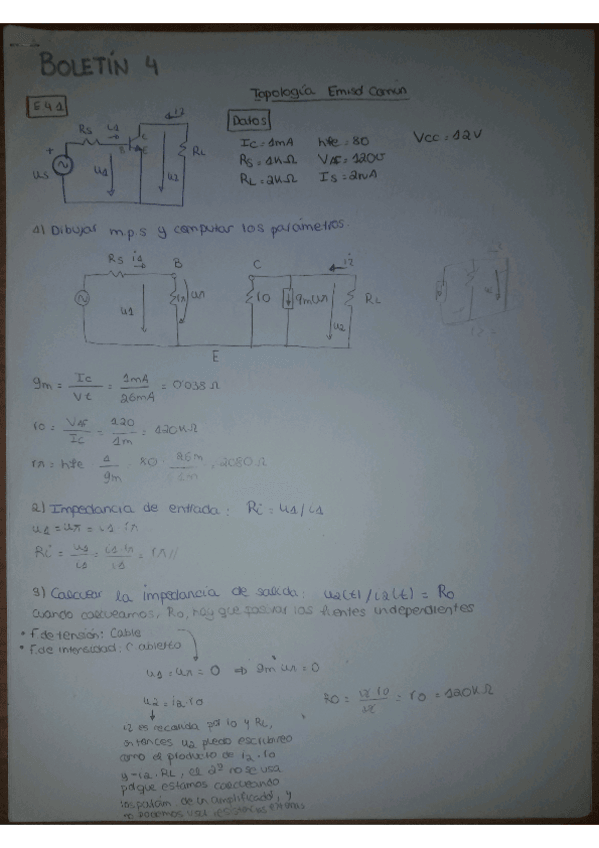 BOLETÍN 4
Topología Emisor Común
E 4.1
Datos
Rs i1 B C E i2 RL us u1 u2
Ic = 1mA hfe = 80 Vcc = 12V
Rs = 1kΩ VAF = 120V
RL = 2kΩ Is = 2nA
1) Dibujar m.p.s y computar los parámetros.
Rs i1 B C i2
u1 rπ uπ ro gmuπ u2 RL
E
gm = Ic / Vt = 1mA / 26mA = 0'038 Ω
ro = VAF / Ic = 120 / 1m = 120kΩ
rπ = hfe 1 / gm 80 26m / 1m 2080 Ω
2) Impedancia de entrada: Ri = u1/i1
u1 = uπ = i1 · rπ
Ri = u1 / i1 = i1 · rπ / i1 = rπ //
3) Calcular la impedancia de salida: u2(t)/i2(t) = Ro
Cuando calculamos, Ro, hay que pasivar las fuentes independientes
• F. de tensión: Cable
• F. de intensidad: C abierto
u1 = uπ = 0 ⇒ gm uπ = 0
u2 = i2 · ro
Ro = i2 · ro / i2 = ro = 120kΩ
i2 es recorrida por ro y RL,
entonces u2 puedo escribirlo
como el producto de i2 · ro
y -i2 · RL, el 2º no se usa
porque estamos calculando
los parám. de un amplificador, y
no podemos usar